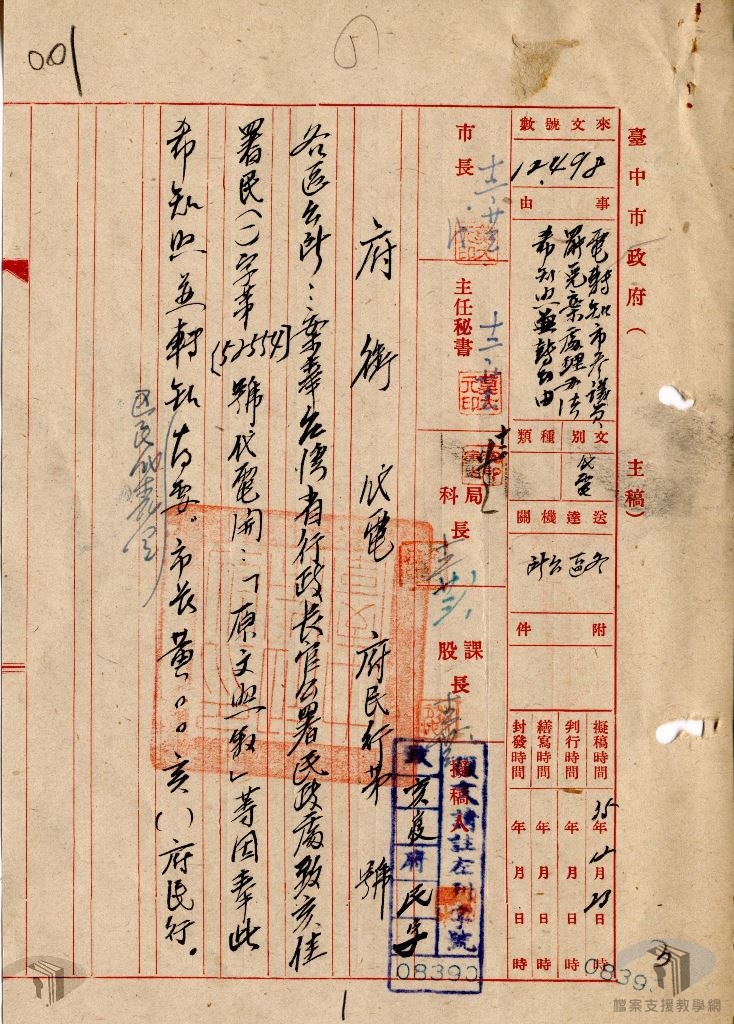 001
5
臺中市政府（　　主稿）
來文號數
12498
事由
電轉知市參議員
罷免案處理办法
希知照並轉知由
文別
代電
種類
送達機關
各區公所
附件
擬稿時間 35年12月23日　時
判行時間　年　月　日　時
繕寫時間　年　月　日　時
封發時間　年　月　日　時
市長
主任秘書
局科長
課股長
擬稿人
復文請註左列字號
致亥 府民字
08390
府銜　代電　府民行第　號
各區公所：案奉台湾省行政長官公署民政處致亥佳
署民(一)字第(52554)號代電開：「原文照敘」等因奉此
希知照並轉知為要。市長黃○○亥()府民行。
1
0839
檔案支援教學網